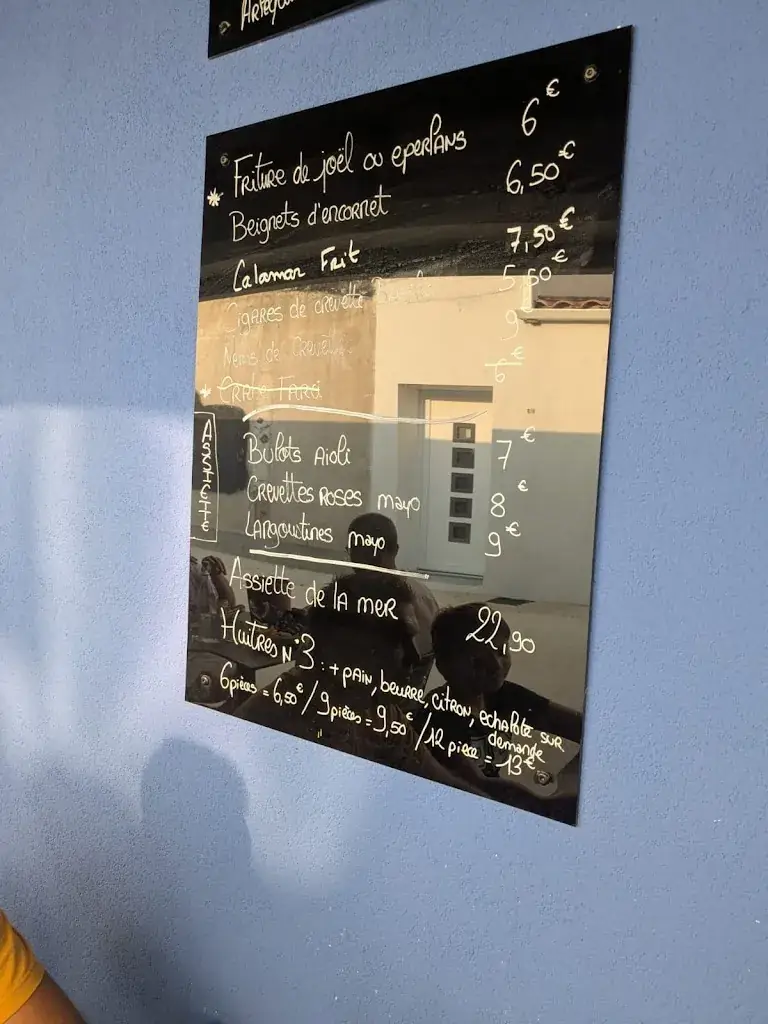 * Friture de joël ou eperlans 6€
Beignets d'encornet 6,50€
Calamar Frit 7,50€
Cigares de crevette 5,50€
Nems de Crevette 9
* 6€
ASSIETTE
Bulots Aioli 7€
Crevettes Roses mayo 8€
Langoustines mayo 9€
Assiette de la mer 22,90
Huîtres N°3 : + pain, beurre, citron, echalote sur demande
6 pièces = 6,50€ / 9 pièces = 9,50€ / 12 pièce = 13€